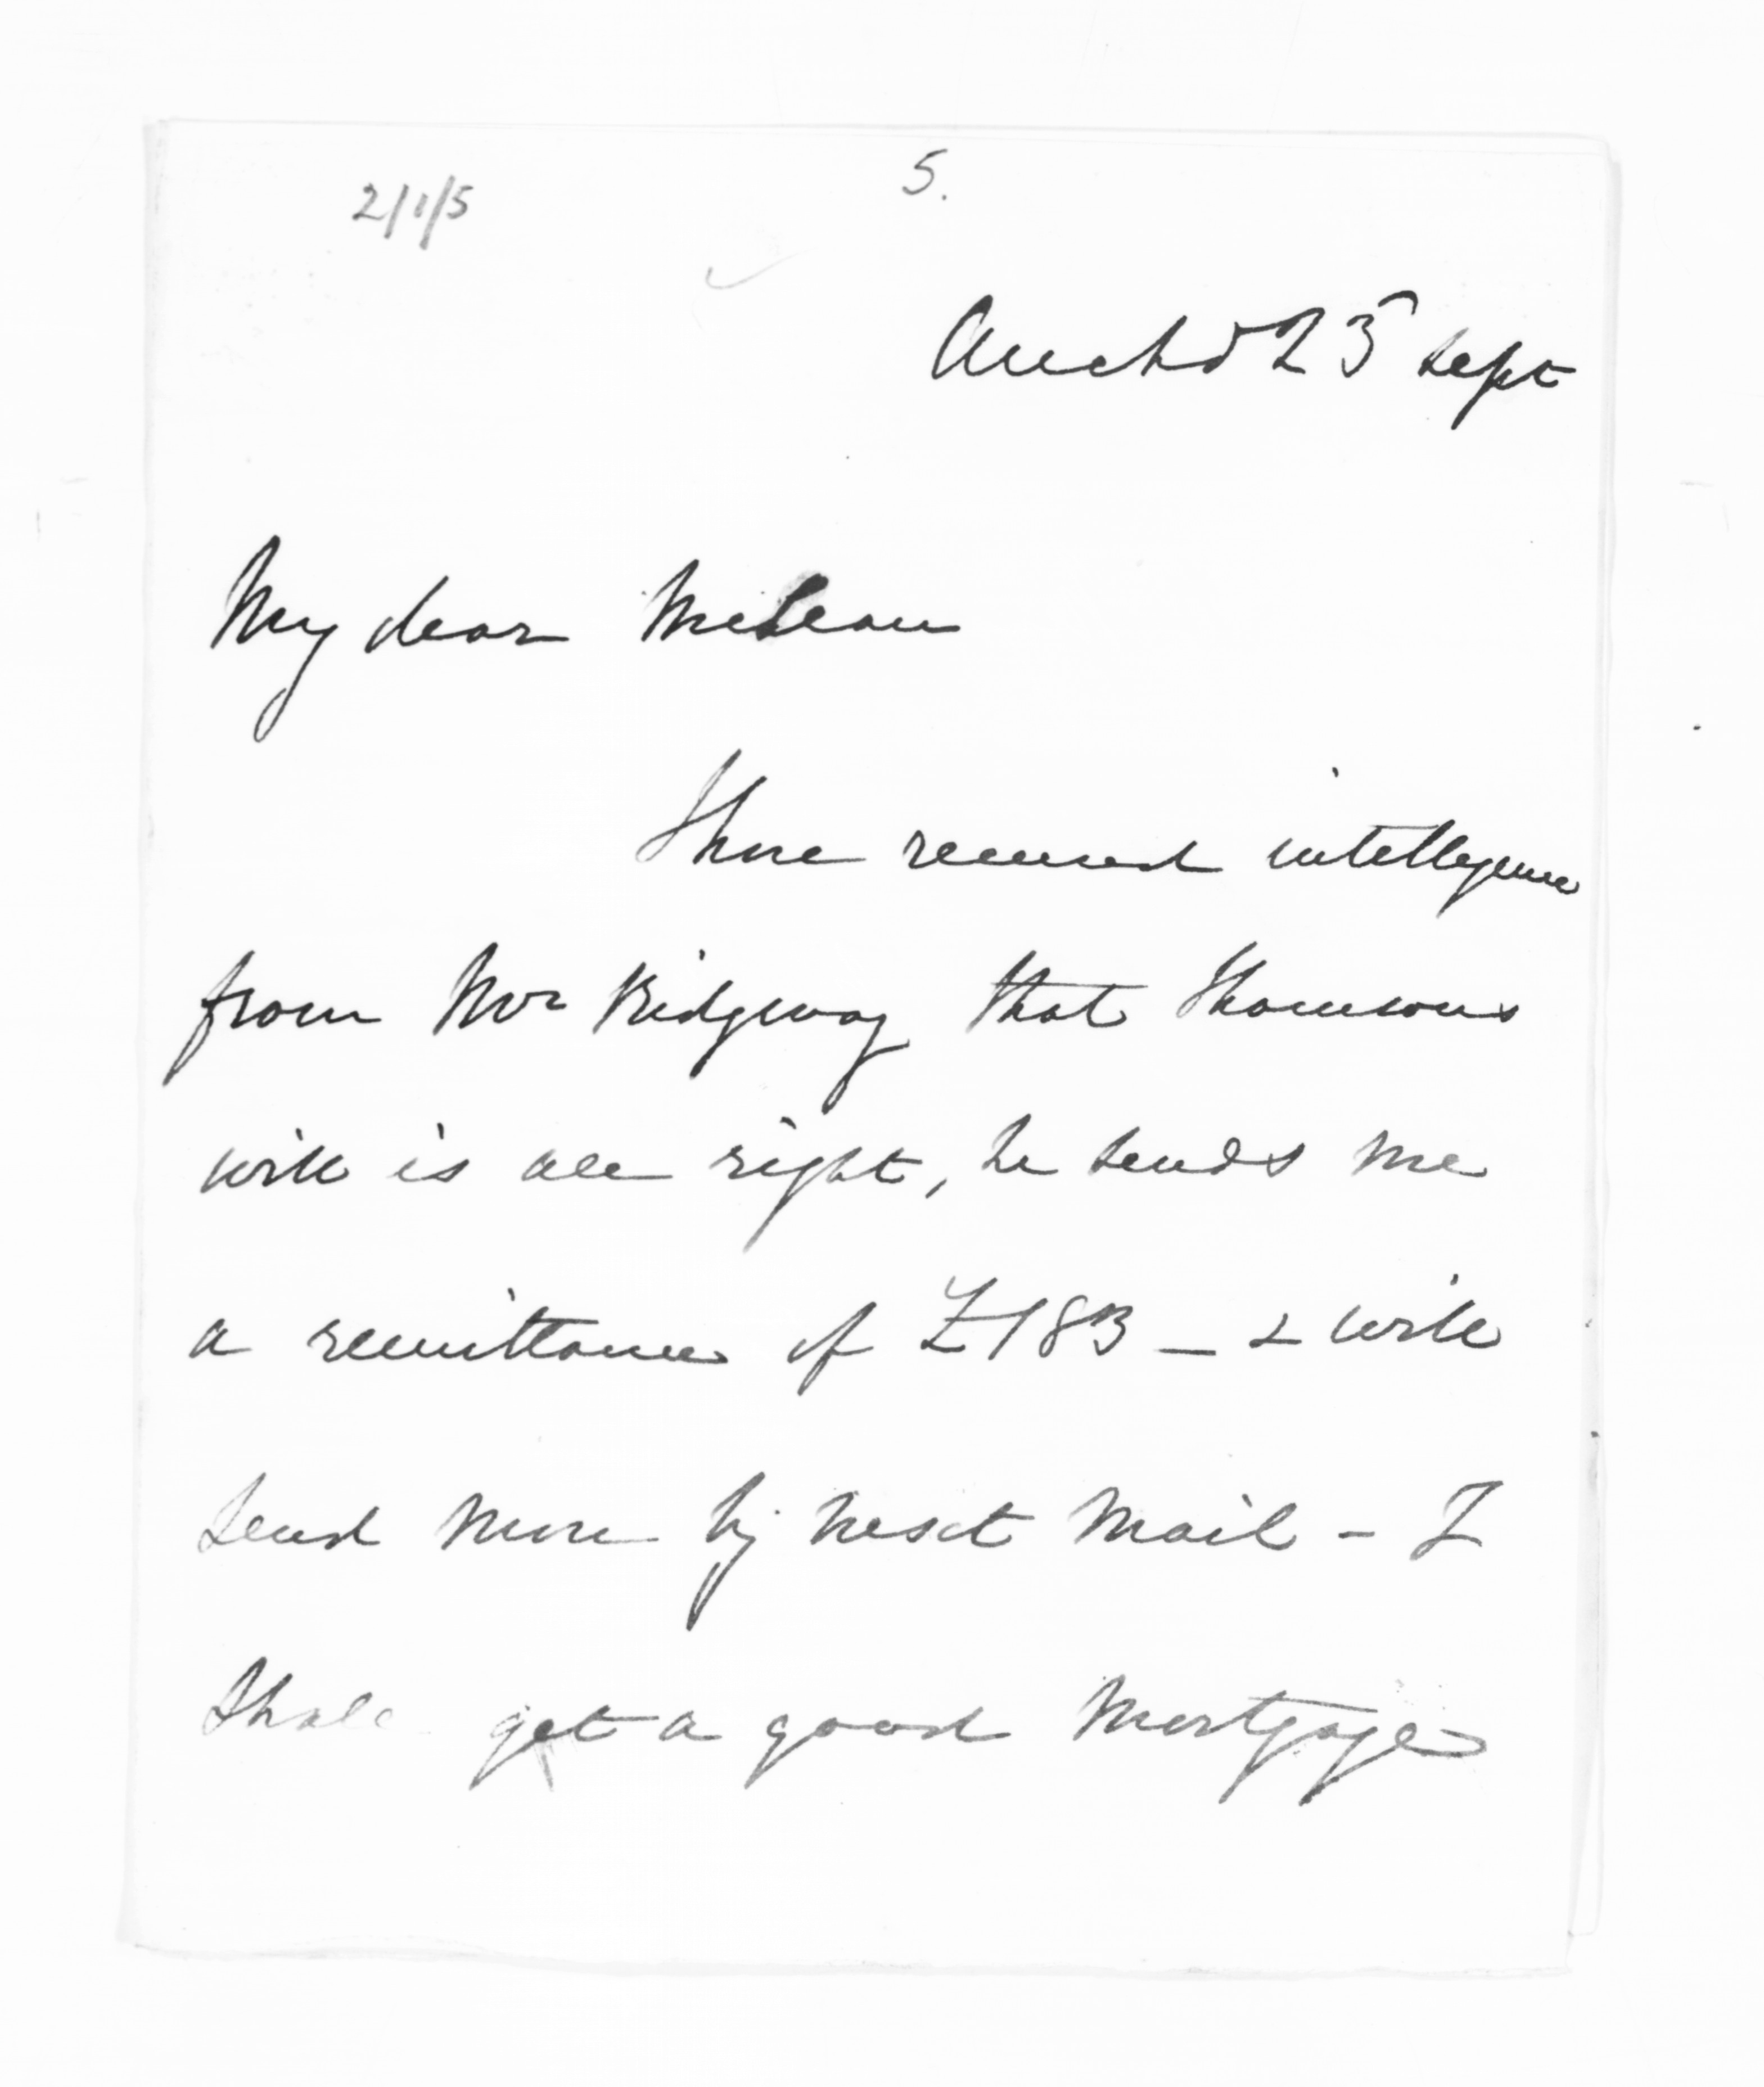 2/1/5
5.
Auckd 25 Sept
My dear McLean
I have received intelligence
from Mr Ridgway that Thomsons
will is all right, he sends me
a remittance of £183 — & will
send more by next mail - I
shall get a good mortgage